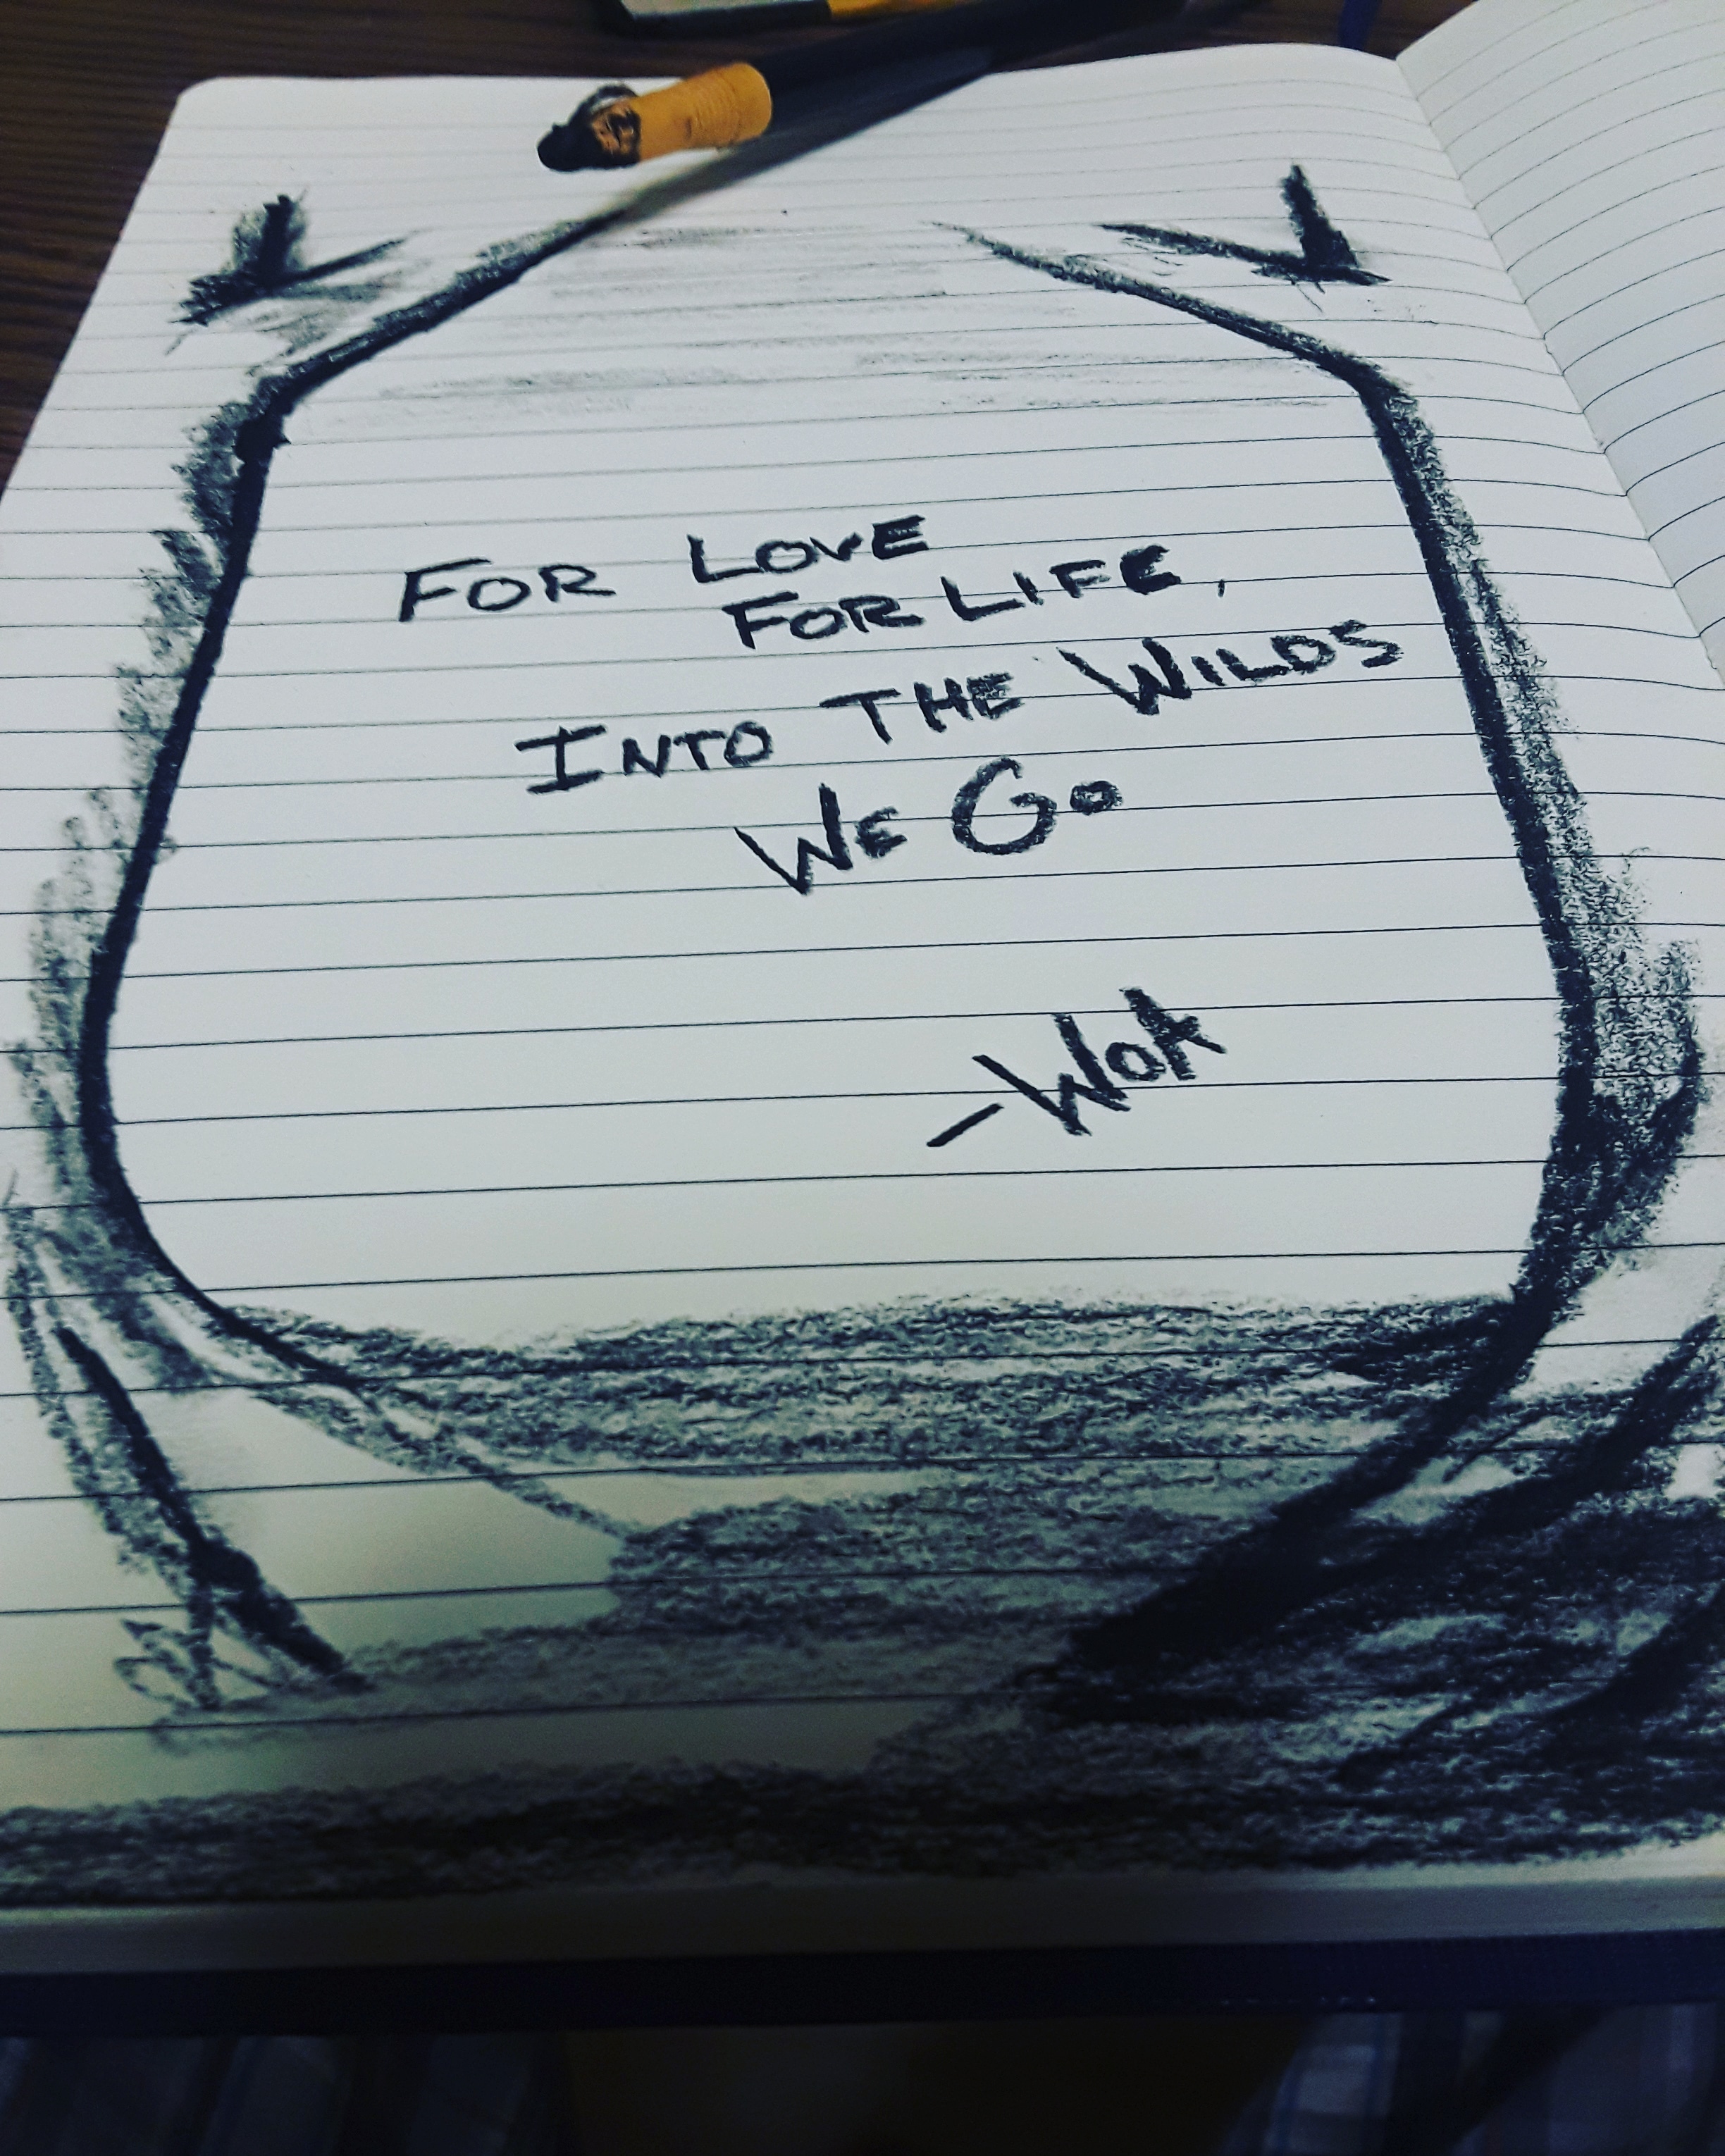 FOR LOVE
FOR LIFE,
INTO THE WILDS
WE GO
-WOA